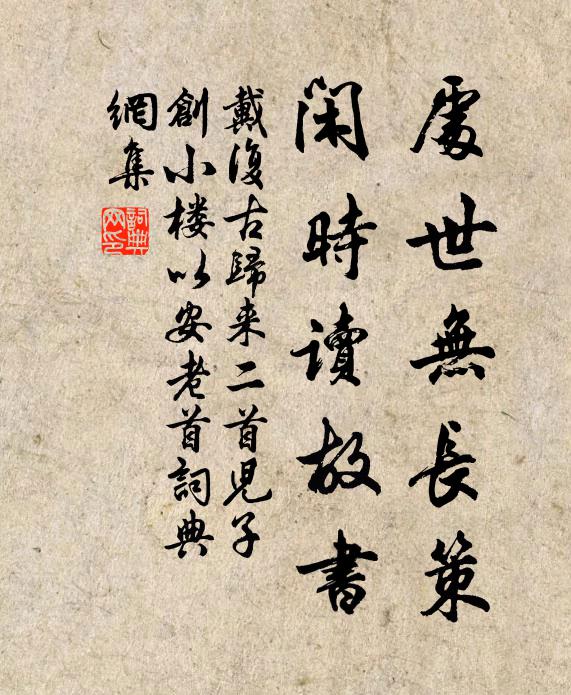 處世無長策
閑時讀故書
戴復古歸来二首児子
創小楼以安老首詞典
網集
詞典網印